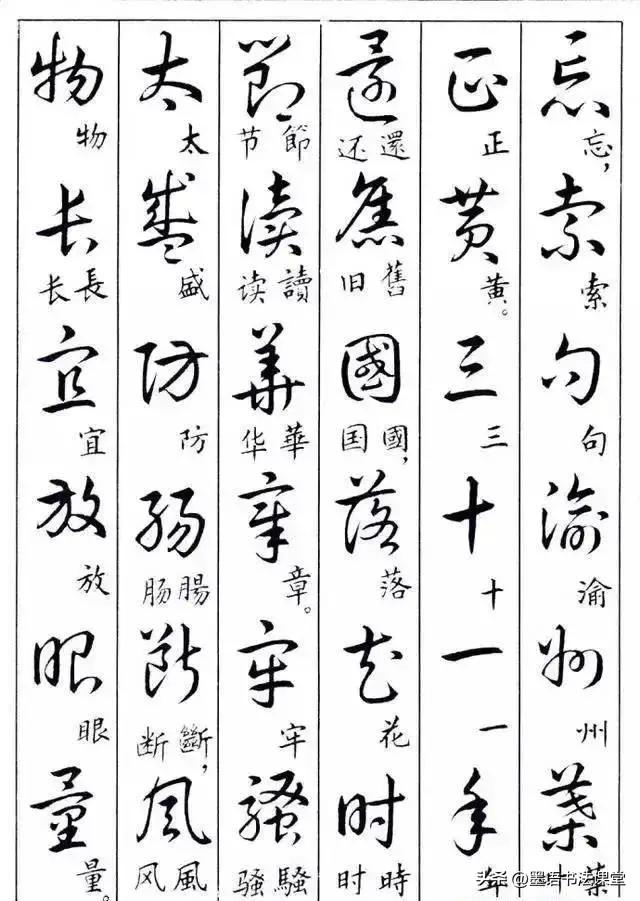 忘索句渝州葉
忘，索句渝州葉
正黄三十一年
正黄。三十一年
還舊國落花时
還还舊旧國国，落花時时
節讀華章牢騷
節节讀读華华章。牢騷骚
太盛防腸斷風
太盛防腸肠斷断，風风
物长宜放眼量
物長长宜放眼量。
头条 @墨语书法课堂